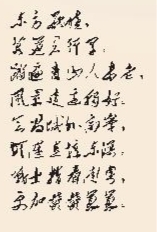 东方欲晓,
莫道君行早。
踏遍青山人未老,
風景這边獨好。
会昌城外高峯,
顛連直接东溟。
战士指看南粤,
更加鬱鬱葱葱。